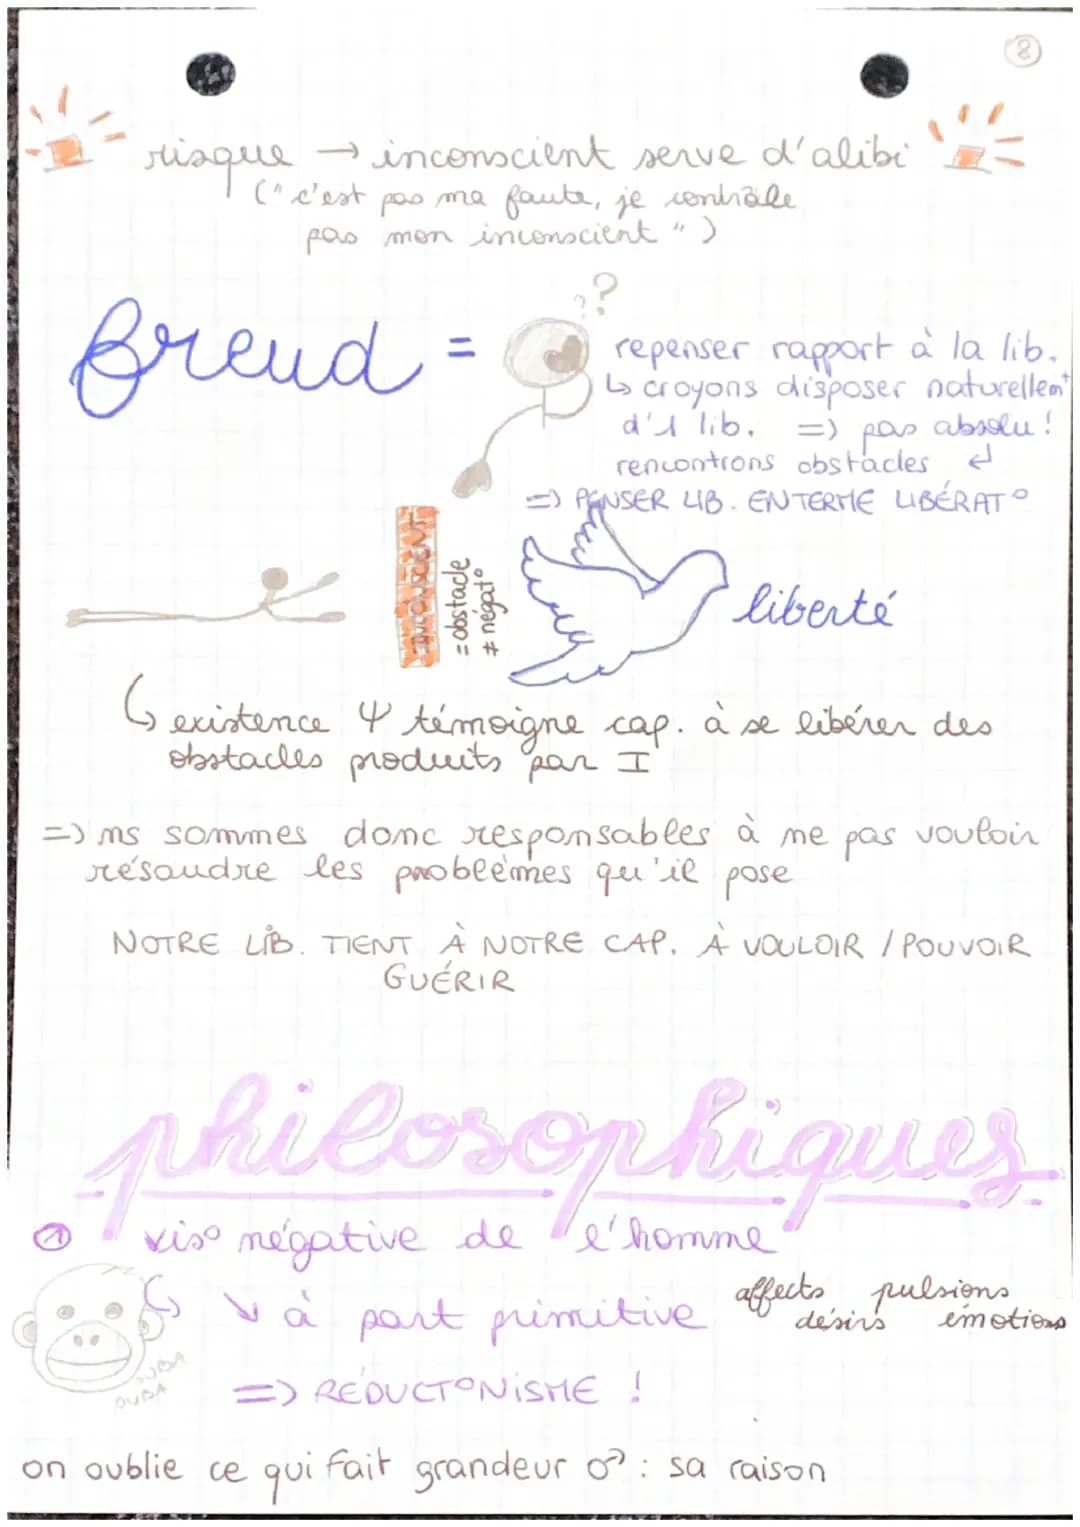 8
risque → inconscient serve d'alibi
("c'est pas ma faute, je contrôle
pas mon inconscient")
??
Freud =
repenser rapport à la lib.
↳ croyons disposer naturellemt
d'1 lib. => pas absolu !
rencontrons obstacles ↵
=> PENSER LIB. EN TERME LIBÉRAT°
INCONSCIENT
= obstacle
≠ négat°
liberté
↳ existence Ψ témoigne cap. à se libérer des
obstacles produits par I
=> ns sommes donc responsables à ne pas vouloir
résoudre les problèmes qu'il pose
NOTRE LIB. TIENT À NOTRE CAP. À VOULOIR / POUVOIR
GUÉRIR
philosophiques
① vis° négative de l'homme
↳ ↘ à part primitive
affects pulsions
désirs émotions
OUBA
OUBA
=> RÉDUCT°NISME !
on oublie ce qui fait grandeur ♂ : sa raison